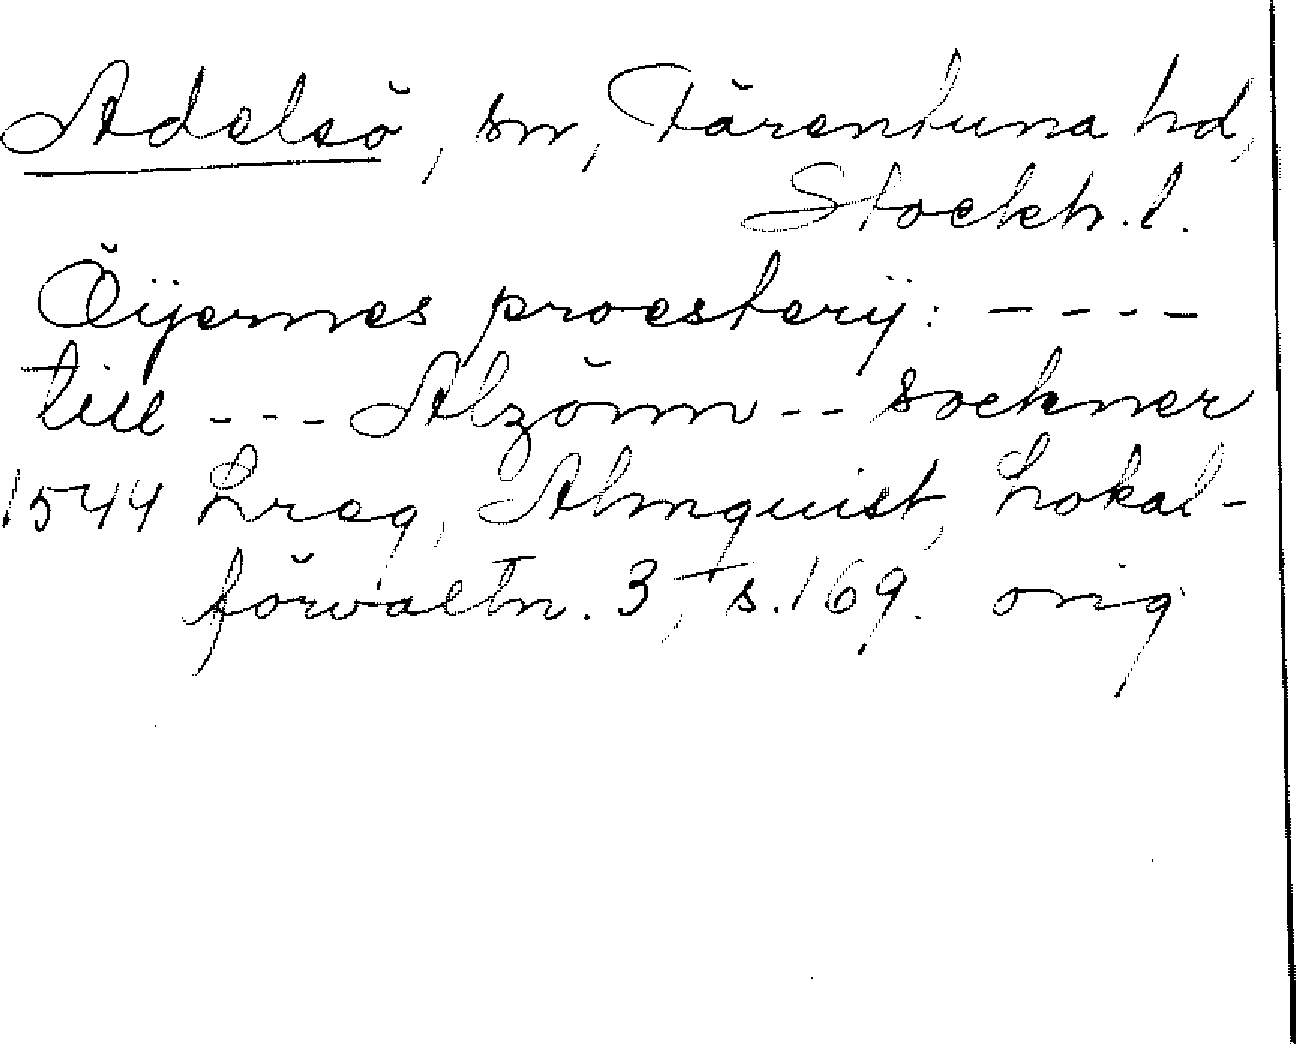 Adelsö, sn, Färentuna hd,
Stockh. l.
Öijernes proesterij: - - - -
till - - - Alzönn - - sockner
1544 Lreg, Almquist, Lokal-
förvaltn. 3, s. 169. orig